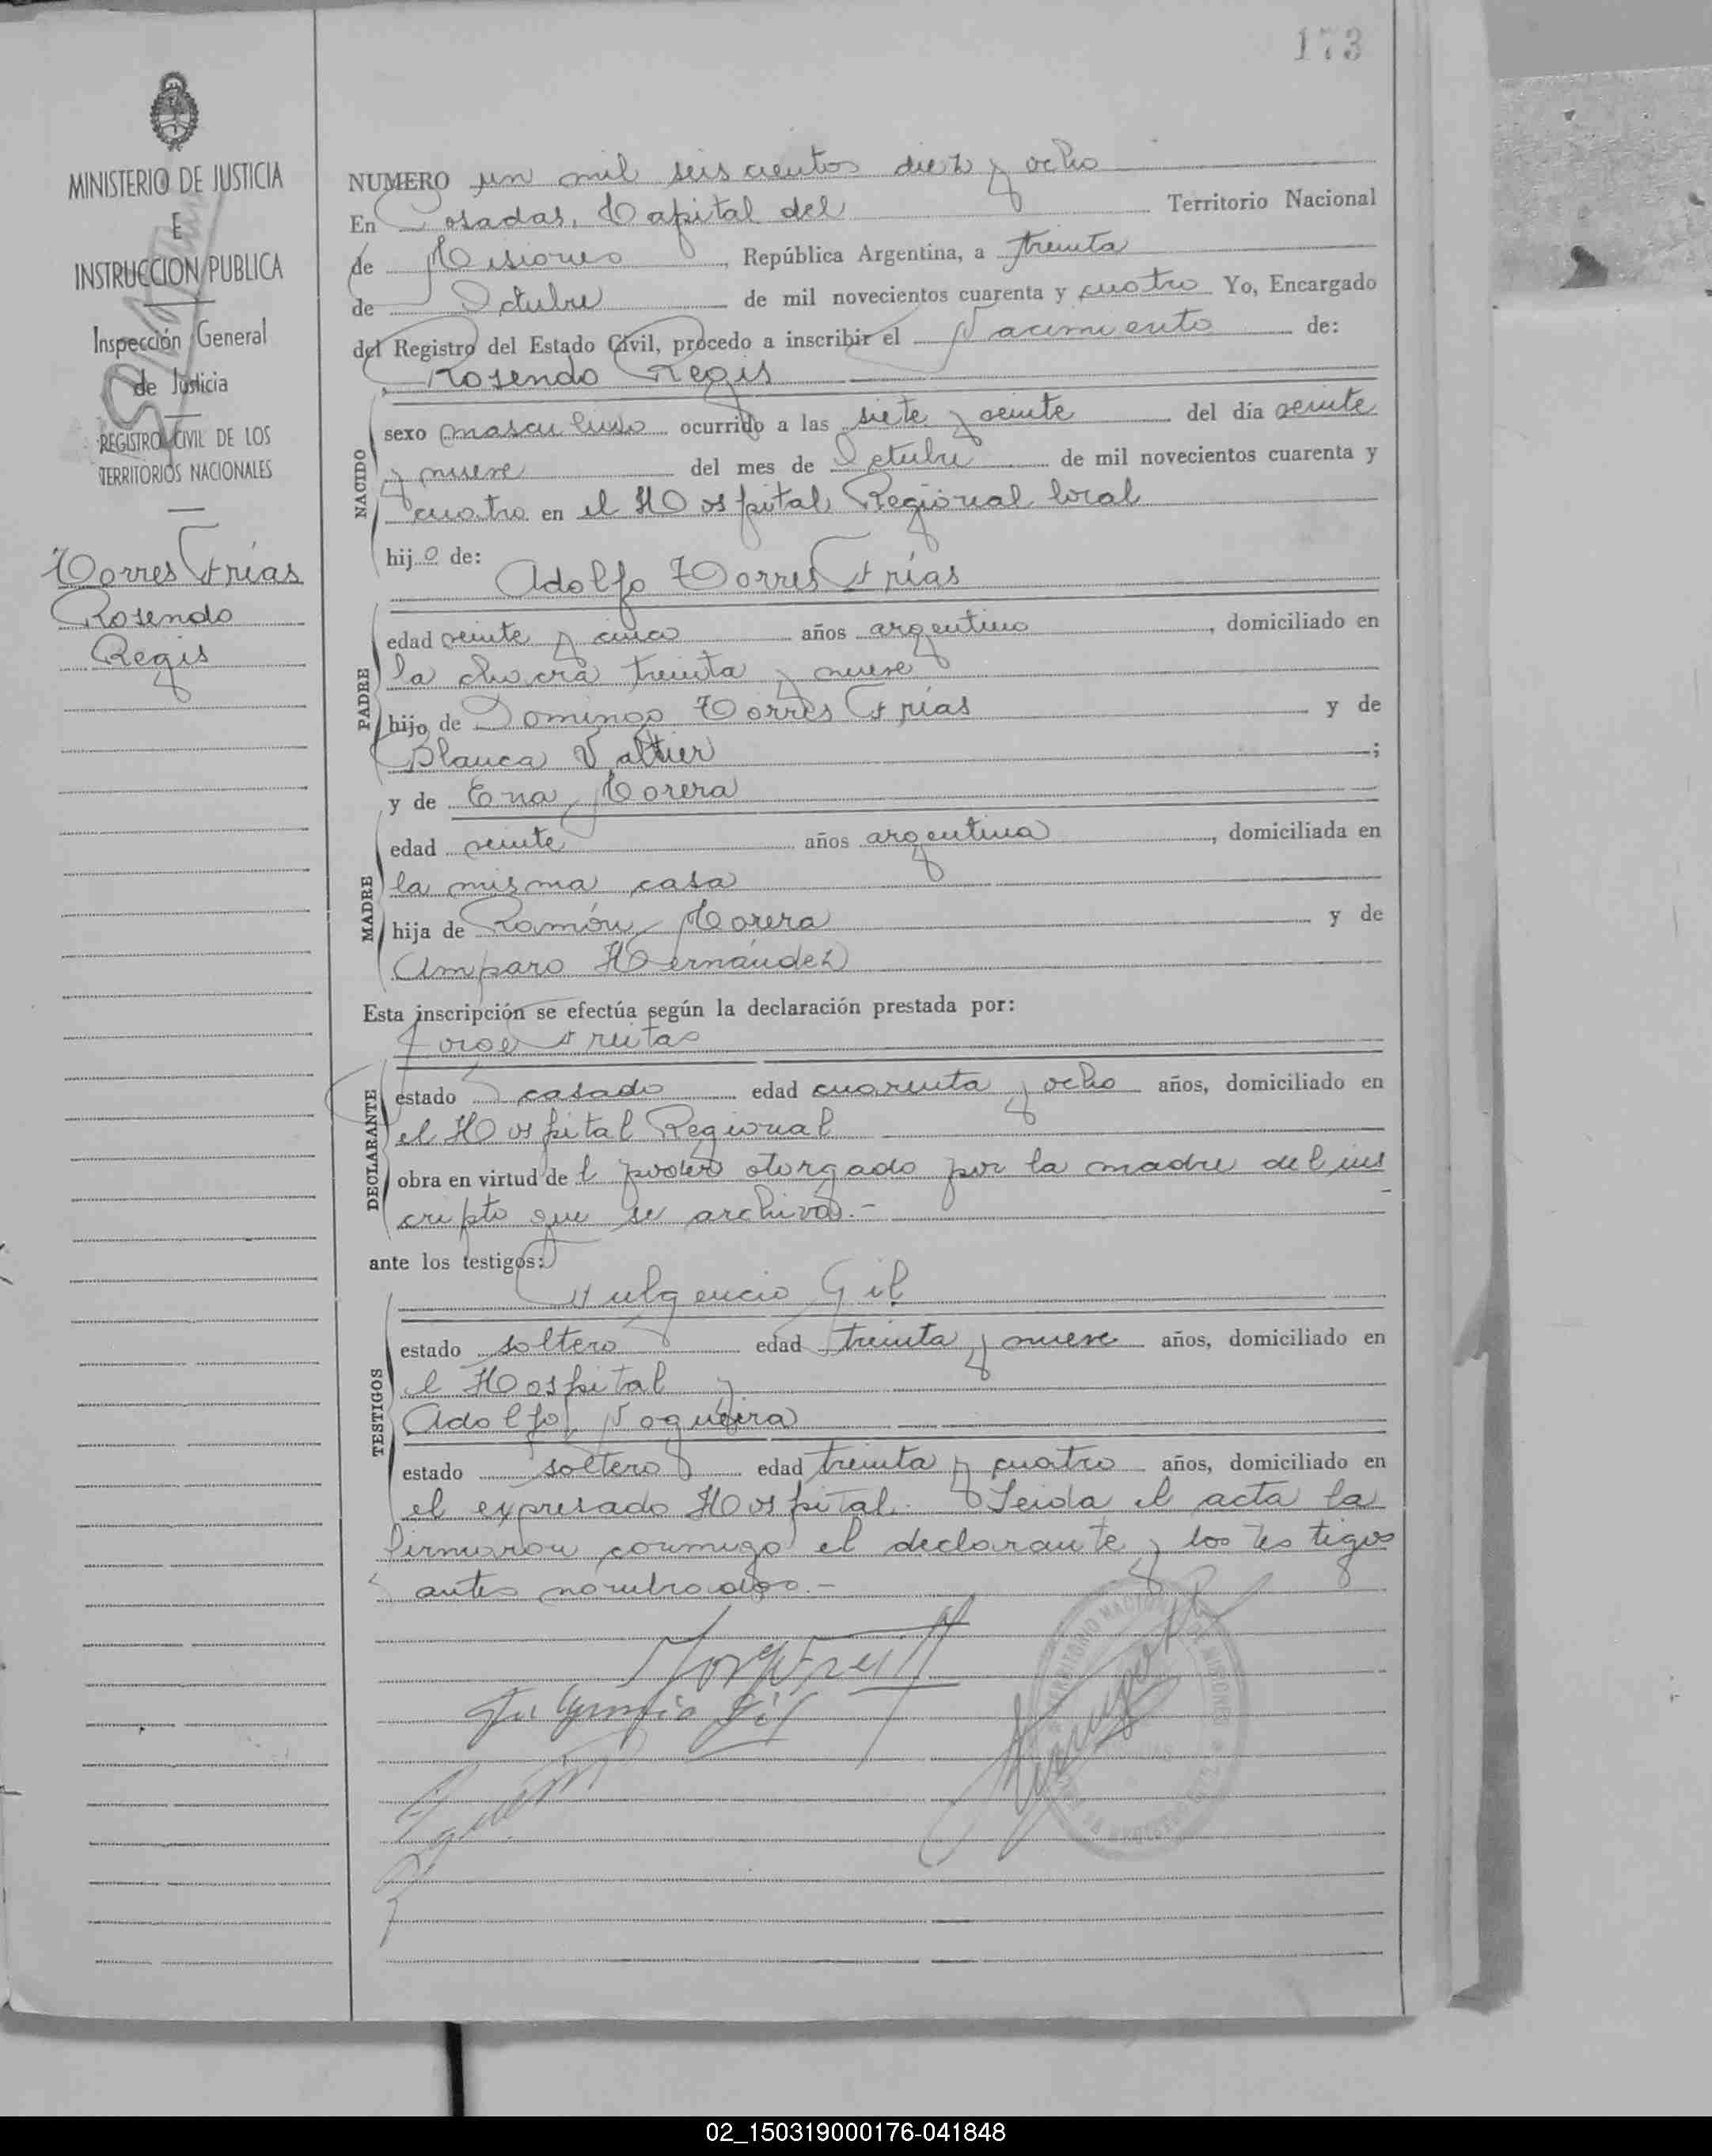 173
MINISTERIO DE JUSTICIA
E
INSTRUCCION PUBLICA
Inspección General
de Justicia
REGISTRO CIVIL DE LOS
TERRITORIOS NACIONALES
Torres Frías
Rosendo
Regis
NUMERO un mil seiscientos diez y ocho
En Posadas, Capital del Territorio Nacional
de Misiones, República Argentina, a treinta
de Octubre de mil novecientos cuarenta y cuatro Yo, Encargado
del Registro del Estado Civil, procedo a inscribir el Nacimiento de:
Rosendo Regis
NACIDO
sexo masculino ocurrido a las siete y veinte del día veinte
y nueve del mes de Octubre de mil novecientos cuarenta y
cuatro en el Hospital Regional local
hijo de:
Adolfo Torres Frías
PADRE
edad veinte y cinco años argentino, domiciliado en
la chacra treinta y nueve
hijo de Domingo Torres Frías y de
Blanca Valtier;
y de Ena Morera
MADRE
edad veinte años argentina, domiciliada en
la misma casa
hija de Ramón Morera y de
Amparo Hernández
Esta inscripción se efectúa según la declaración prestada por:
Jorge Freitas
DECLARANTE
estado casado edad cuarenta y ocho años, domiciliado en
el Hospital Regional
obra en virtud de l poder otorgado por la madre del ins
cripto que se archiva.-
ante los testigos:
Fulgencio Gil
TESTIGOS
estado soltero edad treinta y nueve años, domiciliado en
el Hospital y
Adolfo Nogueira
estado soltero edad treinta y cuatro años, domiciliado en
el expresado Hospital. Leida el acta la
firmaron conmigo el declarante y los testigos
antes nombrados.-
Jorge Freitas
Fulgencio Gil
02_150319000176-041848